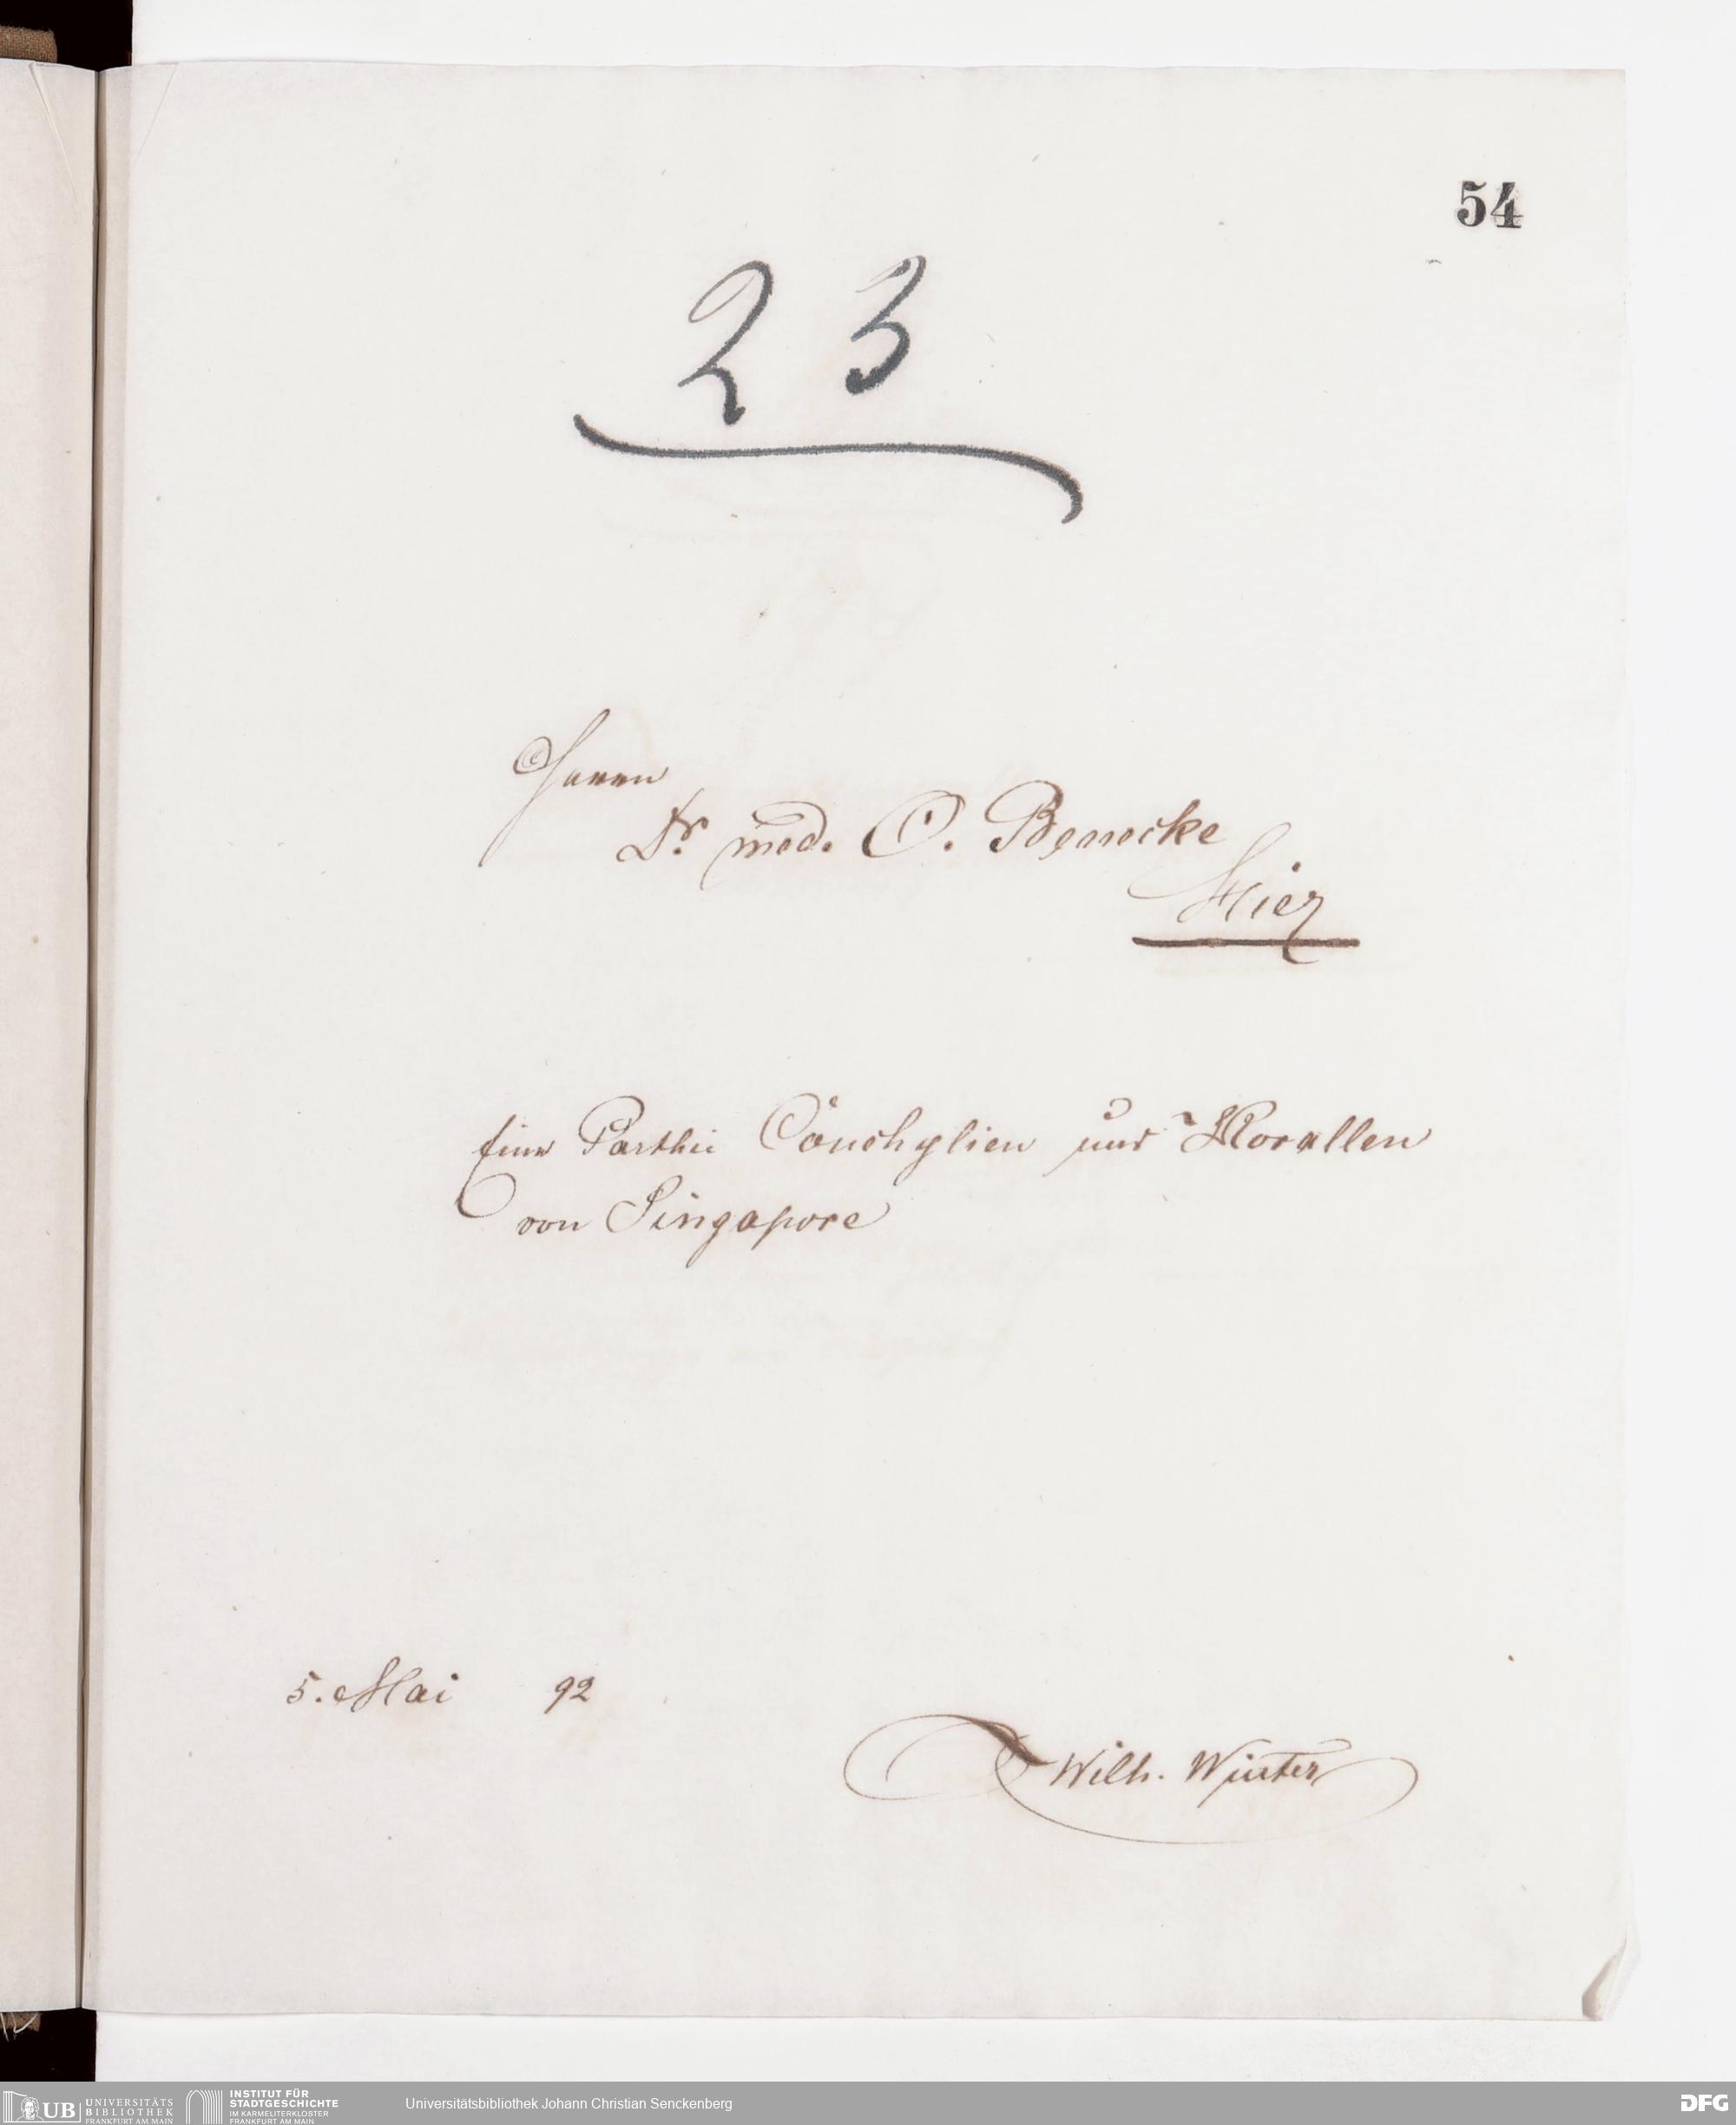 54
23
Herrn
Dr. med. O. Benecke
Hier
Eine Parthie Conchylien und Korallen
von Singapore
5. Mai 92
Wilh. Winter
UB UNIVERSITÄTS
BIBLIOTHEK
FRANKFURT AM MAIN
INSTITUT FÜR
STADTGESCHICHTE
IM KARMELITERKLOSTER
FRANKFURT AM MAIN
Universitätsbibliothek Johann Christian Senckenberg
DFG